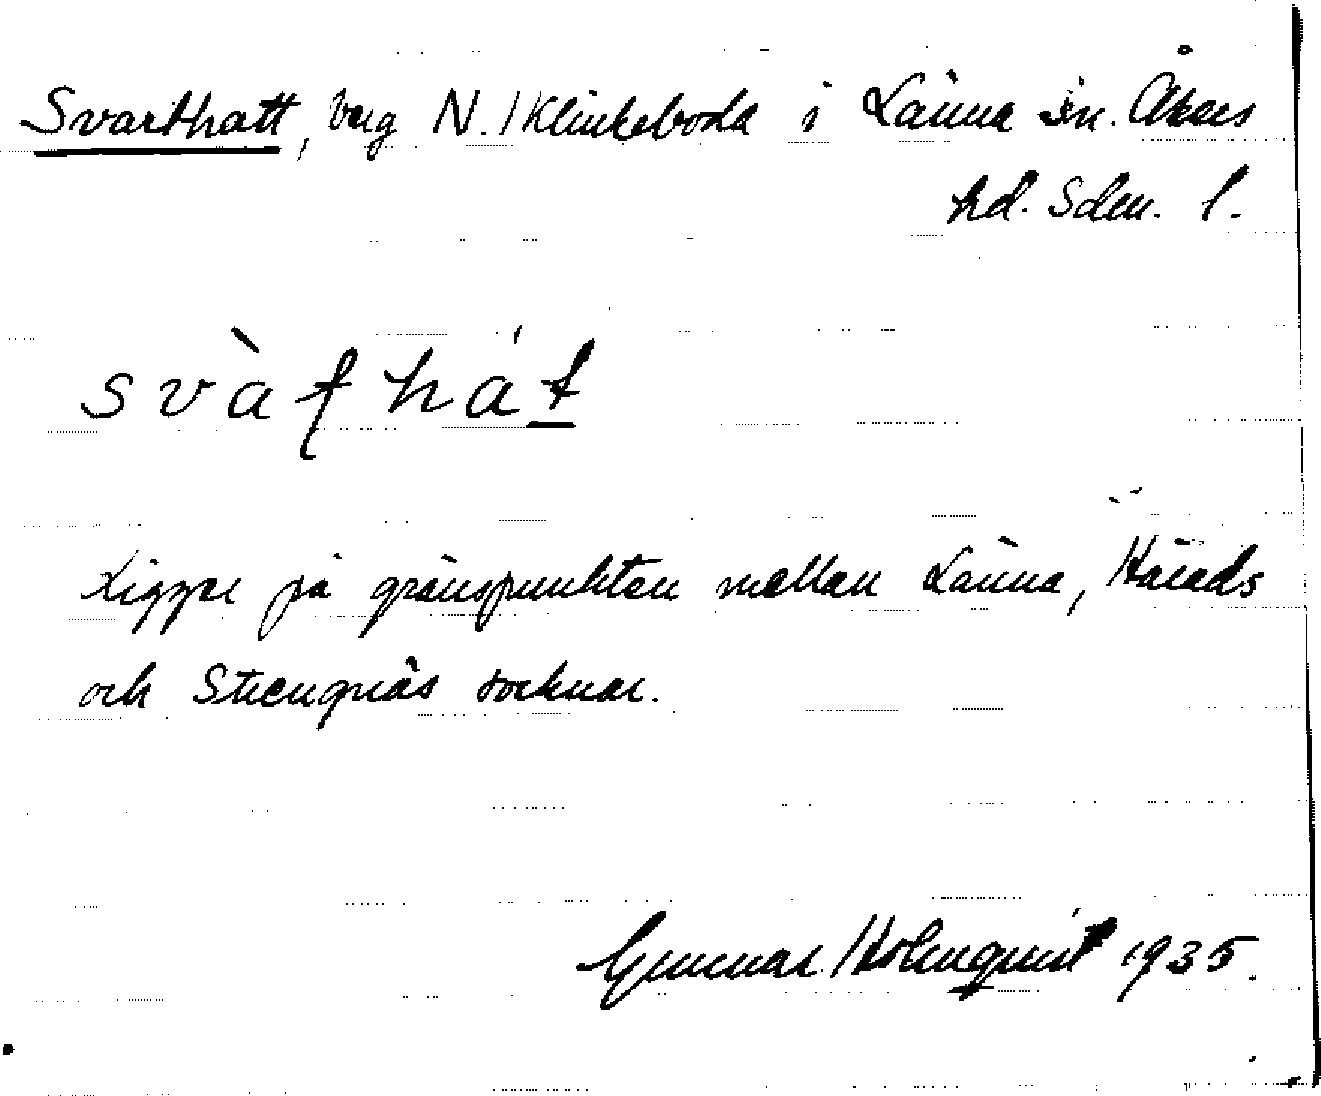 Svarthatt, berg N. Klinkeboda i Länna sn. Åkers
hd. Sdm. l.
svàʈ há t
Ligger på gränspunkten mellan Länna, Härads
och Strengnäs socknar.
Gunnar Holmquist 1935.